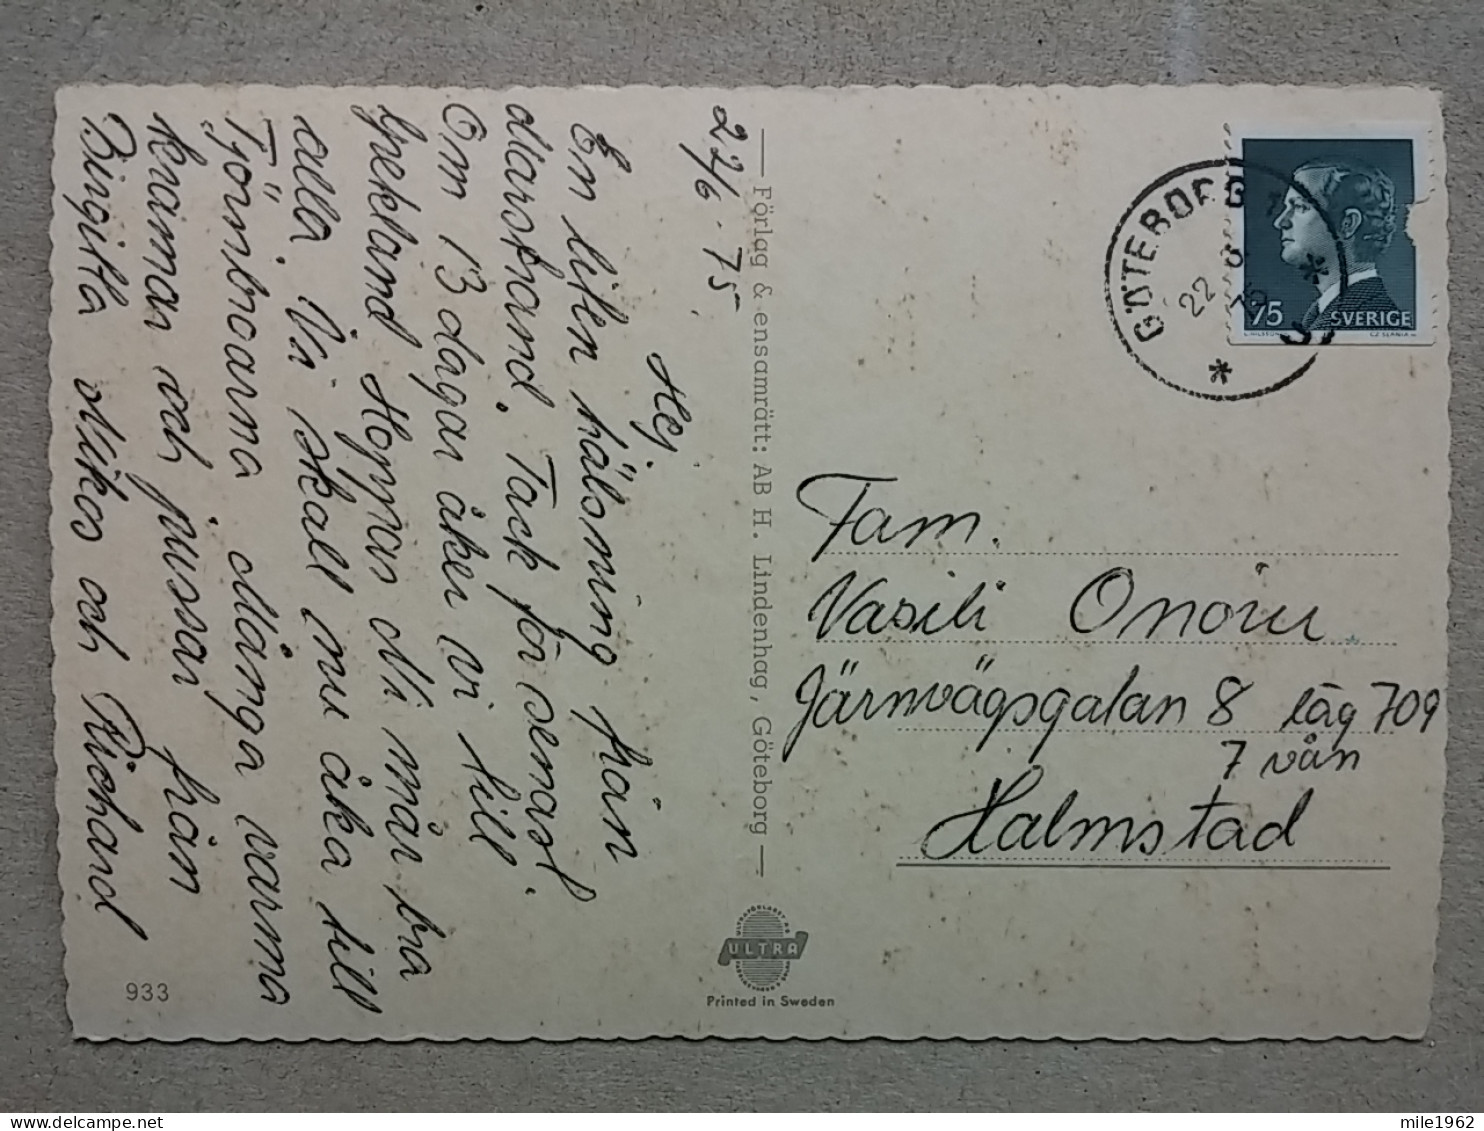 22/6-75.
Hej.
En liten hälsning från
Marstrand. Tack för senast.
Om 13 dagar åker vi till
Grekland Hoppas Ni mår bra
alla. Vi skall nu åka till
Tjörnbroarna Många varma
kramar och pussar från
Birgitta Nikos och Richard
933
Förlag & ensamrätt: AB H. Lindenhag, Göteborg
ULTRA
Printed in Sweden
GÖTEBORG 1
22 6
75
75 SVERIGE
Fam.
Vasili
Järnvägsgatan 8 läg 709
7 vån
Halmstad
mile1962